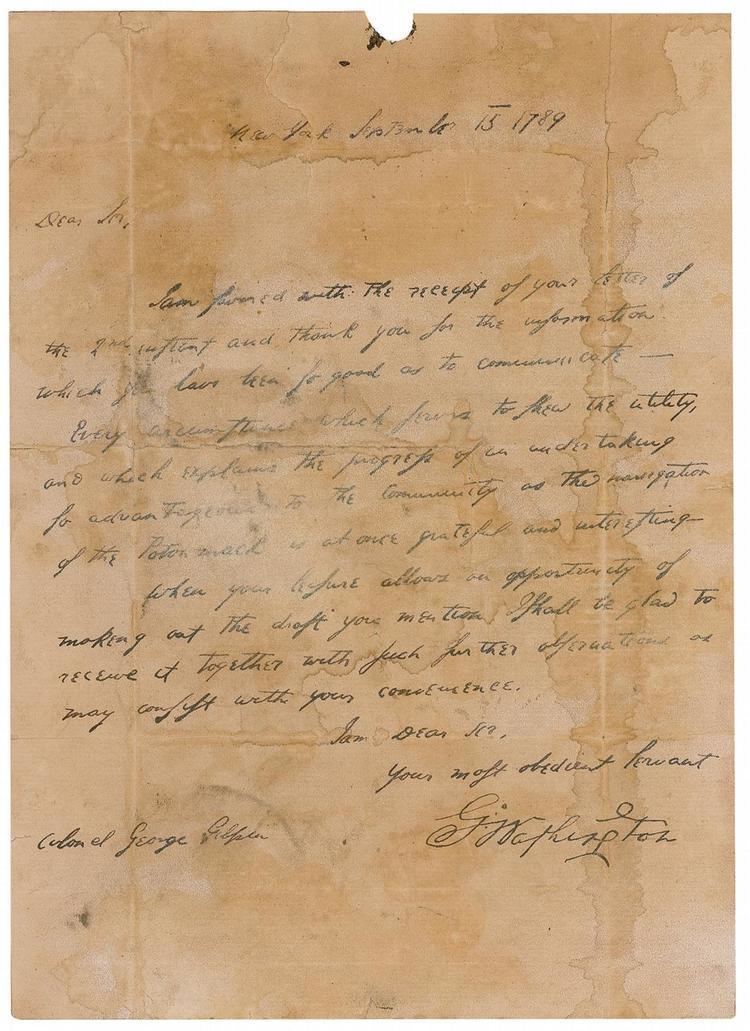 New York September 15 1789
Dear Sir,
I am favored with the receipt of your letter of
the 2nd inſtant and thank you for the information
which you have been ſo good as to communicate —
Every circumſtance which ſerves to ſhew the utility,
and which explains the progreſs of an undertaking
ſo advantageous to the community as the navigation
of the Potowmack is at once grateful and intereſting —
When your leiſure allows an opportunity of
making out the draft you mention, I ſhall be glad to
receive it together with ſuch further obſervations as
may conſiſt with your convenience.
I am Dear Sir,
Your moſt obedient Servant
G:Waſhington
Colonel George Gilpin